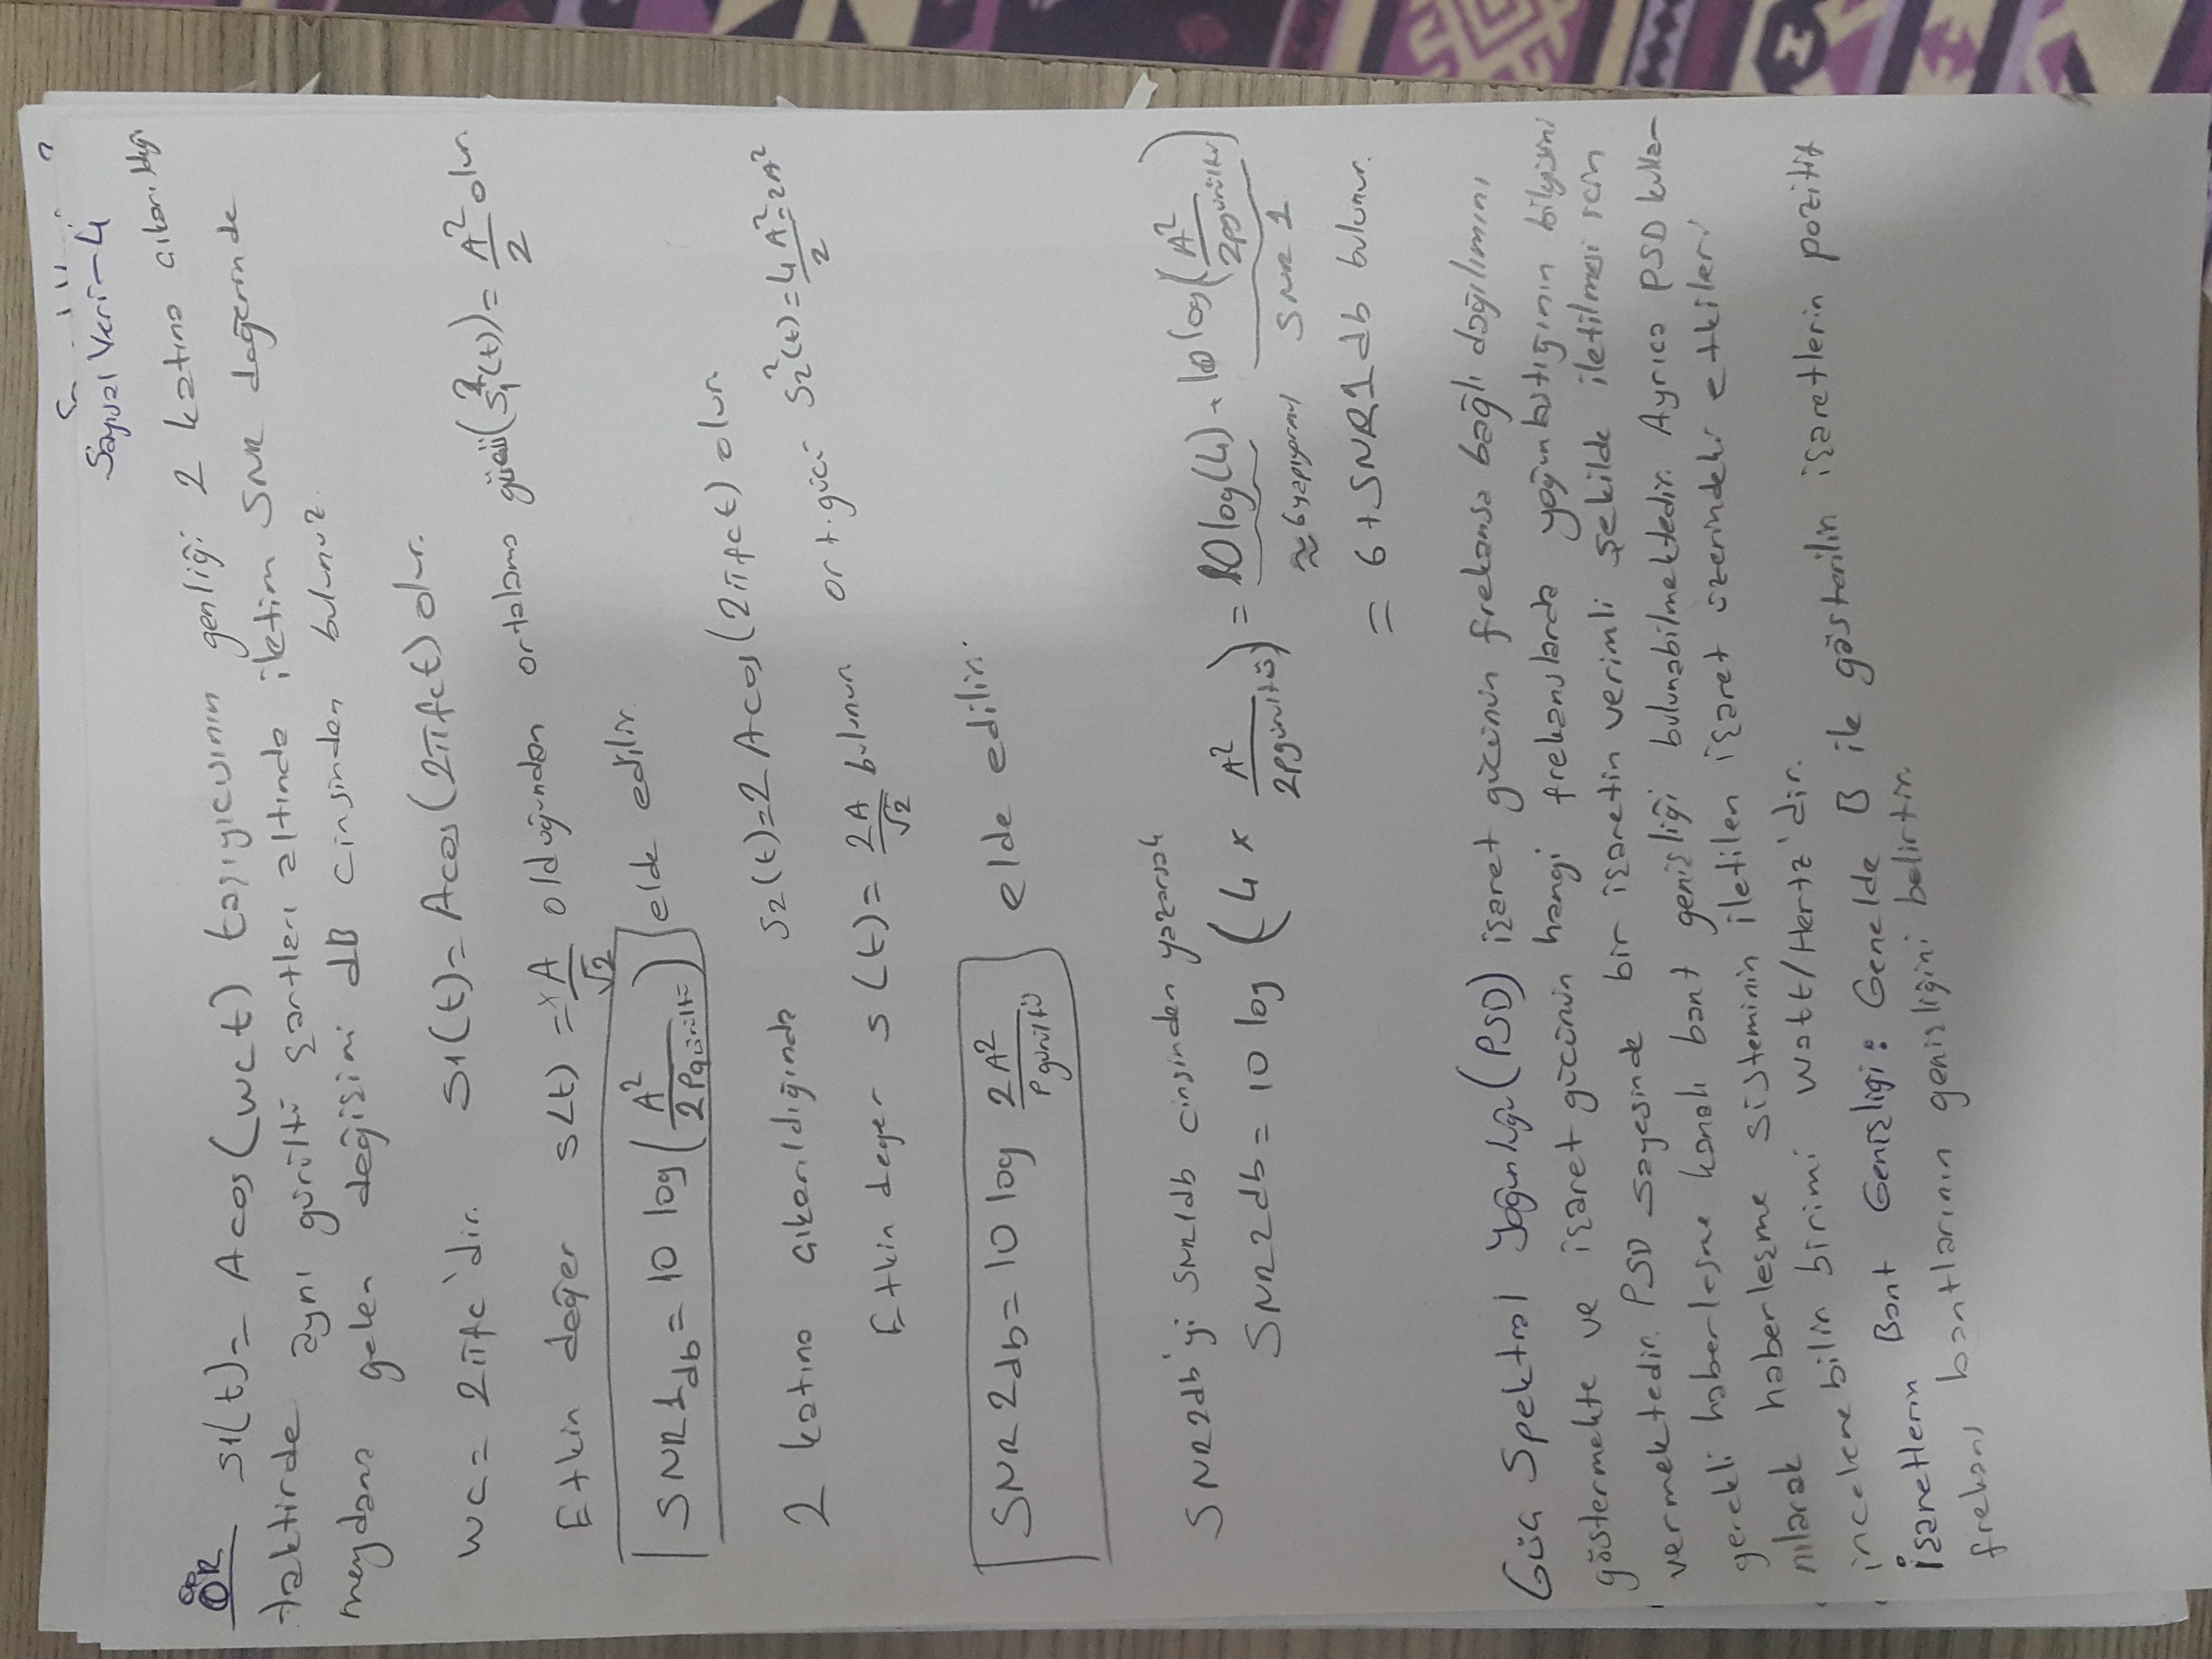 Sayısal Veri-4
ÖR s1(t)= A cos(wct) taşıyıcısının genliği 2 katına çıkarıldığı
taktirde aynı gürültü şartları altında iletim SNR değerinde
meydana gelen değişimi dB cinsinden bulunuz.
wc= 2πfc'dir. S1(t)= Acos(2πfct) olur.
Etkin değer s(t) = A/√2 olduğundan ortalama gücü (s₁²(t))= A²/2 olur.
SNR1db = 10 log(A²/2Pgürültü) elde edilir.
2 katına çıkarıldığında s2(t)=2 Acos(2πfct) olur.
Etkin deger s(t)= 2A/√2 bulunur ort. gücü S2²(t)= 4A²/2=2A²
SNR2db= 10 log 2A²/Pgürültü elde edilir.
SNR2db'yi SNR1db cinsinden yazarsak
SNR2db= 10 log (4 x A²/2pgürültü) = 10log(4) + 10 log(A²/2pgürültü)
≈ 6 yapıyormuş SNR 1
= 6+SNR1db bulunur.
Güç Spektral Yoğunluğu (PSD) işaret gücünün frekansa bağlı dağılımını
göstermekte ve işaret gücünün hangi frekanslarda yoğunlaştığının bilgisini
vermektedir. PSD sayesinde bir işaretin verimli şekilde iletilmesi için
gerekli haberleşme kanalı bant genişliği bulunabilmektedir. Ayrıca PSD kulla-
nılarak haberleşme sisteminin iletilen işaret üzerindeki etkileri
incelenebilir birimi Watt/Hertz'dir.
İşaretlerin Bant Genişligi: Genelde B ile gösterilir işaretlerin pozitif
frekans bantlarının genişliğini belirtir.